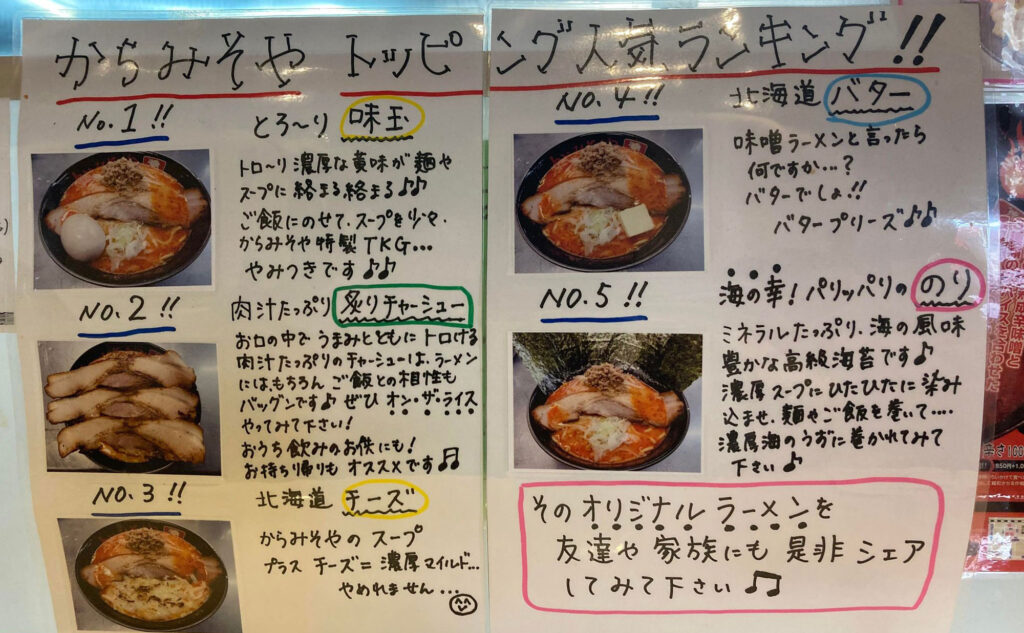 からみそや トッピング人気ランキング!!
No.1!!
とろ〜り 味玉
トロ〜リ濃厚な黄味が麺や
スープに絡まる絡まる♪♪
ご飯にのせて、スープを少々、
からみそや特製TKG...
やみつきです♪♪
NO.2!!
肉汁たっぷり 炙りチャーシュー
お口の中でうまみとともにトロける
肉汁たっぷりのチャーシューは、ラーメン
には、もちろん ご飯との相性も
バッグンです♪ ぜひ オン・ザ・ライス
やってみて下さい!
おうち飲みのお供にも!
お持ち帰りも オススメです♫
NO.3!!
北海道 チーズ
からみそやの スープ
プラス チーズ=濃厚マイルド...
やめれません...
NO.4!!
北海道 バター
味噌ラーメンと言ったら
何ですか...?
バターでしょ!!
バタープリーズ♪♪
NO.5!!
海の幸! パリッパリの のり
ミネラルたっぷり、海の風味
豊かな高級海苔です♪
濃厚スープにひたひたに染み
込ませ、麺やご飯を巻いて....
濃厚海のうずに巻かれてみて
下さい♪
そのオリジナルラーメンを
友達や家族にも是非シェア
してみて下さい♫
辛さ100